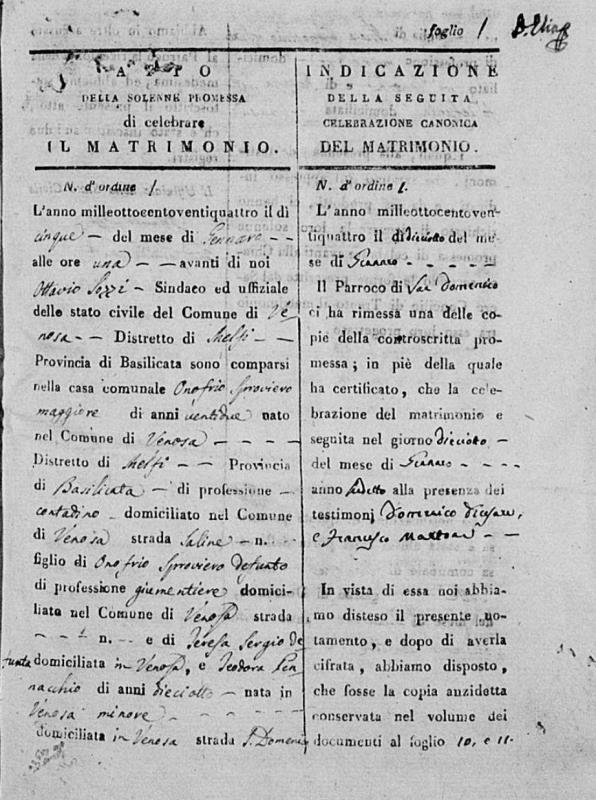 foglio 1 D. Elia
ATTO
DELLA SOLENNE PROMESSA
di celebrare
IL MATRIMONIO.
N. d'ordine 1
L'anno milleottocentoventiquattro il dì
cinque – del mese di Gennaro – –
alle ore una – – avanti di noi
Ottavio Sozzi – Sindaco ed uffiziale
dello stato civile del Comune di Ve-
nosa – – Distretto di Melfi – –
Provincia di Basilicata sono comparsi
nella casa comunale Onofrio Sproviero
maggiore di anni ventidue nato
nel Comune di Venosa – – – –
Distretto di Melfi – – Provincia
di Basilicata – di professione –
contadino – domiciliato nel Comune
di Venosa strada Saline – n.
figlio di Onofrio Sproviero defunto
di professione giumentiere domici-
liato nel Comune di Venosa strada
n. – e di Teresa Sergio de
funta domiciliata in Venosa, e Teodora Pen
nacchio di anni dieciotto – nata in
Venosa minore – –
domiciliata in Venosa strada S. Domenico
INDICAZIONE
DELLA SEGUITA
CELEBRAZIONE CANONICA
DEL MATRIMONIO.
N. d'ordine 1.
L'anno milleottocentoven-
tiquattro il dì dieciotto del me-
se di Gennaro – – – –
Il Parroco di San Domenico
ci ha rimessa una delle co-
pie della controscritta pro-
messa; in piè della quale
ha certificato, che la cele-
brazione del matrimonio è
seguita nel giorno dieciotto –
del mese di Gennaro – – – –
anno suddetto alla presenza dei
testimonj Domenico
e Francesco – –
In vista di essa noi abbia-
mo disteso il presente no-
tamento, e dopo di averla
cifrata, abbiamo disposto,
che fosse la copia anzidetta
conservata nel volume dei
documenti al foglio 10. e 11.